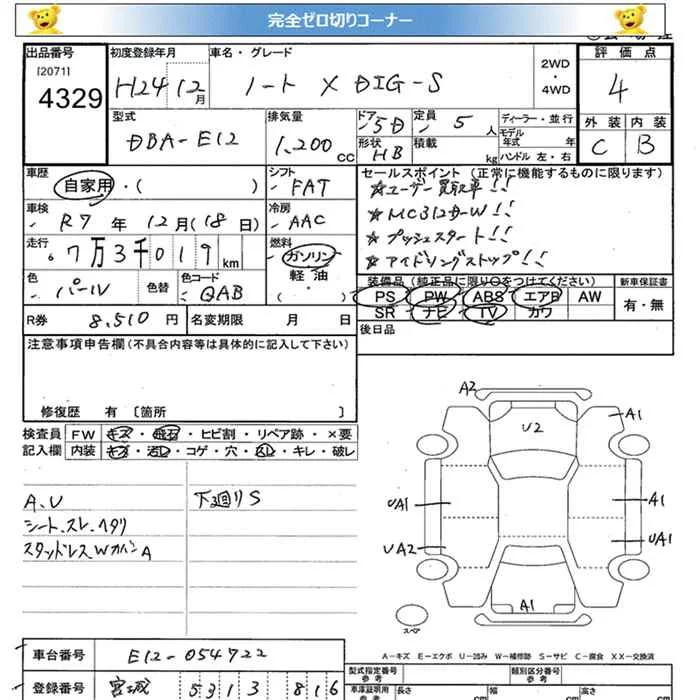 完全ゼロ切りコーナー
出品番号 初度登録年月 車名・グレード 2WD・4WD 評価点
[2071]
4329 H24 12月 ノート X DIG-S 4
型式 排気量 ドア 定員 ディーラー・並行 外装 内装
DBA-E12 1,200cc 5D 5人 モデル年式 年 C B
形状 HB 積載 kg ハンドル 左・右
車歴 シフト セールスポイント (正常に機能するものに限ります)
自家用・( ) FAT ☆ユーザー買取車!!
車検 冷房 ☆MC312カーW!!
R7年 12月(18日) AAC ☆プッシュスタート!!
走行 燃料 ☆アイドリングストップ!!
7万3千019km ガソリン
軽油
( ・ )
色 色替 色コード 装備品 (純正品に限り○をつけてください) 新車保証書
パール QAB PS PW ABS エアB AW 有・無
SR ナビ TV カワ
R券 8,510円 名変期限 月 日 後日品
注意事項申告欄(不具合内容等は具体的に記入して下さい)
修復歴 有 〔箇所 〕
検査員 FW キズ・飛石・ヒビ割・リペア跡・×要
記入欄 内装 キズ・汚レ・コゲ・穴・スレ・キレ・破レ
A.U 下廻りS
シート.スレ.ヘタリ
スタッドレス.W A
A2 A1
U2
UA1 A1
UA2 UA1
A1
スペア
A-キズ E-エクボ U-凹み W-補修跡 S-サビ C-腐食 XX-交換済
車台番号 E12-054722
型式指定番号 参考 類別区分番号 参考
登録番号 宮城 531 3 816
車庫証明用 参考 長さ cm 幅 cm 高さ cm